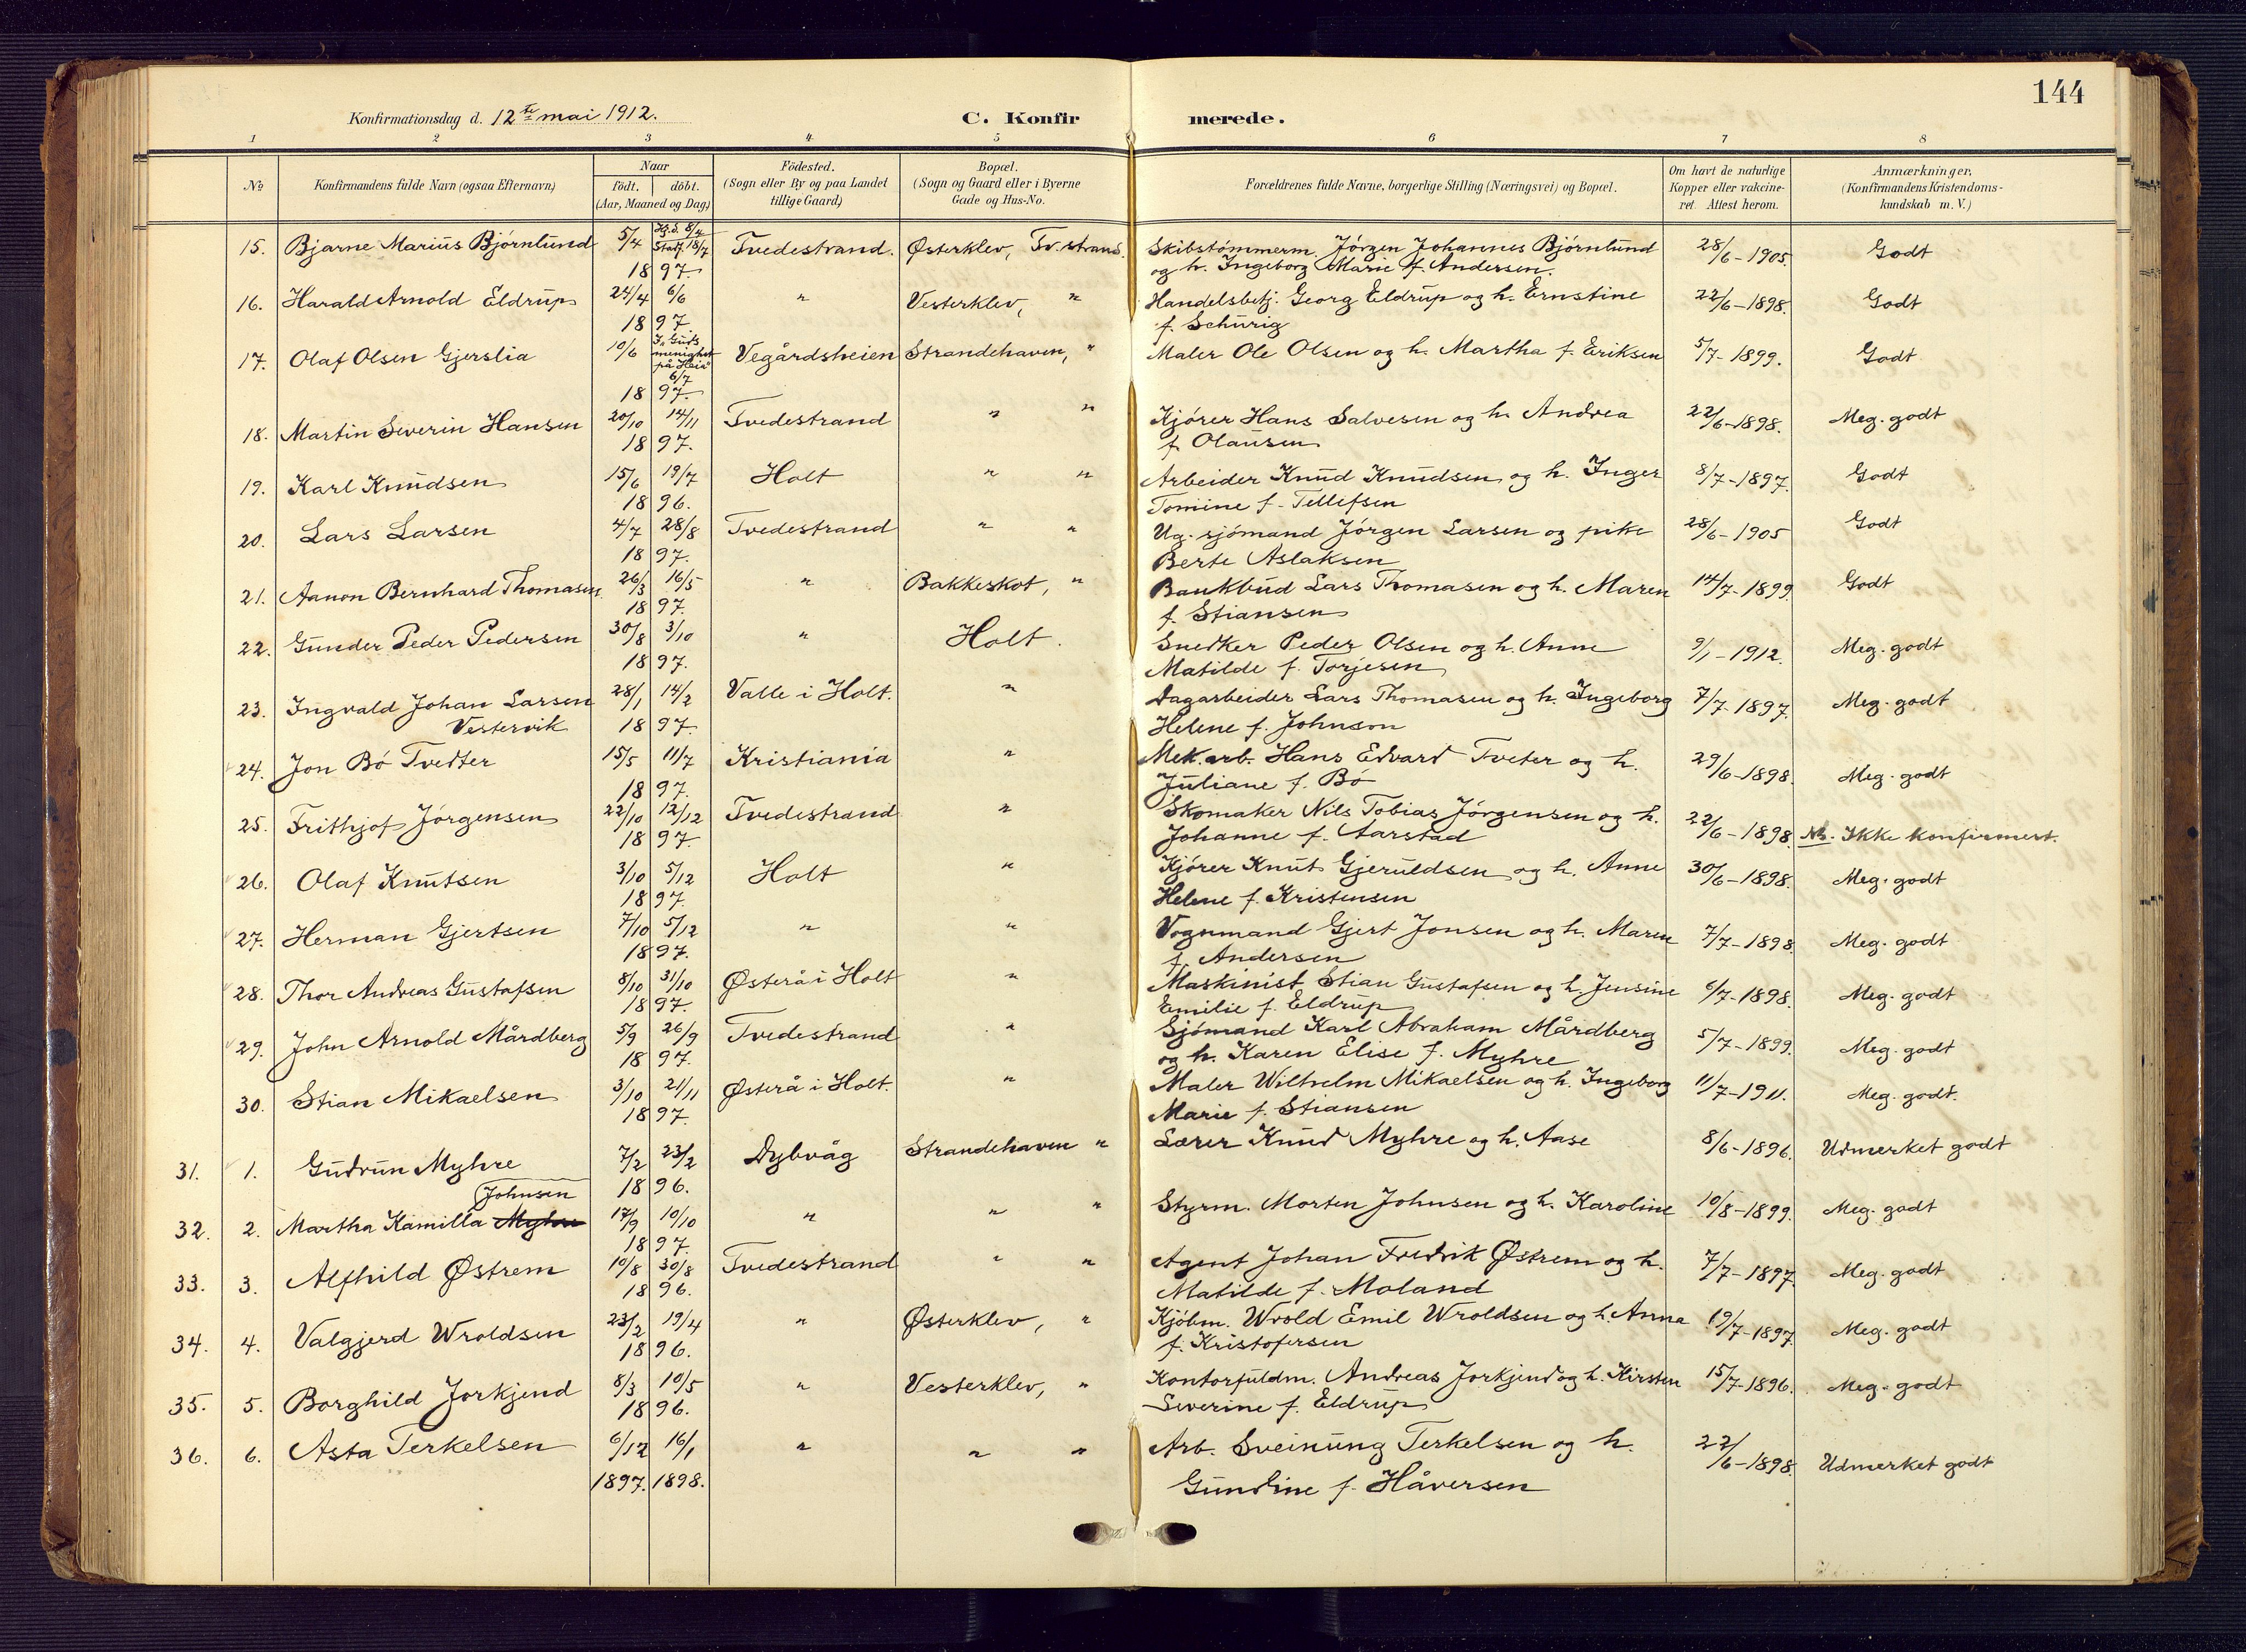 144
Konfirmationsdag d. 12te mai 1912. C. Konfirmerede.
1 2 3 4 5 6 7 8
No Konfirmandens fulde Navn (ogsaa Efternavn) Naar født. døbt. (Aar, Maaned og Dag) Födested. (Sogn eller By og paa Landet tillige Gaard) Bopæl. (Sogn og Gaard eller i Byerne Gade og Hus-No. Forældrenes fulde Navne, borgerlige Stilling (Næringsvei) og Bopæl. Om havt de naturlige Kopper eller vakcineret. Attest herom. Anmærkninger, (Konfirmandens Kristendomskundskab m. V.)
15. Bjarne Marius Bjørnlund 5/4 Hj.d. 8/4 Stadf. 18/7 1897. Tvedestrand. Østerklev, Tv.strand. Skibstømmerm. Jørgen Johannes Bjørnlund
og h. Ingeborg Marie f. Andersen. 28/6-1905. Godt
16. Harald Arnold Eldrup 24/4 6/6 1897. " Vesterklev, " Handelsbetj. Georg Eldrup og h. Ernstine
f. Schürig 22/6-1898. Godt
17. Olaf Olsen Gjerslia 10/6 I "Guds menighet på Heia" 6/7 1897. Vegårdsheien Strandehaven, " Maler Ole Olsen og h. Martha f. Eriksen 5/7-1899. Godt
18. Martin Severin Hansen 20/10 14/11 1897. Tvedestrand " " Kjører Hans Salvesen og h. Andrea
f. Olausen 22/6-1898. Meg. godt
19. Karl Knudsen 15/6 19/7 1896. Holt " " Arbeider Knud Knudsen og h. Inger
Tomine f. Tellefsen 8/7-1897. Godt
20. Lars Larsen 4/7 28/8 1897. Tvedestrand " " Ug. sjømand Jørgen Larsen og pike
Berte Aslaksen 28/6-1905 Godt
21. Aanon Bernhard Thomasen 26/3 16/5 1897. " Bakkeskot, " Bankbud Lars Thomasen og h. Maren
f. Stiansen 14/7-1899. Godt
22. Gunder Peder Pedersen 30/8 3/10 1897. " Holt. Snedker Peder Olsen og h. Anne
Matilde f. Torjesen 9/1-1912. Meg. godt
23. Ingvald Johan Larsen
Vestervik 28/1 14/2 1897. Valle i Holt. " Dagarbeider Lars Thomasen og h. Ingeborg
Helene f. Johnson 7/7-1897. Meg. godt
24. Jon Bø Tvedter 15/5 11/7 1897. Kristiania " Mek. arb. Hans Edvard Tveter og h.
Juliane f. Bø 29/6-1898. Meg. godt
25. Frithjof Jørgensen 22/10 12/12 1897. Tvedestrand " Skomaker Nils Tobias Jørgensen og h.
Johanne f. Aarstad 22/6-1898. NB. Ikke konfirmert.
26. Olaf Knutsen 3/10 5/12 1897. Holt " Kjører Knut Gjeruldsen og h. Anne
Helene f. Kristensen 30/6-1898. Meg. godt
27. Herman Gjertsen 7/10 5/12 1897. " " Vognmand Gjert Jonsen og h. Maren
f. Andersen 7/7-1898. Meg. godt
28. Thor Andreas Gustafsen 8/10 31/10 1897. Østerå i Holt " Maskinist Stian Gustafsen og h. Jensine
Emilie f. Eldrup 6/7-1898. Meg. godt
29. John Arnold Mårdberg 5/9 26/9 1897. Tvedestrand " Sjømand Karl Abraham Mårdberg
og h. Karen Elise f. Myhre 5/7-1899. Meg. godt
30. Stian Mikaelsen 3/10 21/11 1897. Østerå i Holt. " Maler Wilhelm Mikaelsen og h. Ingeborg
Marie f. Stiansen 11/7-1911. Meg. godt.
31. 1. Gudrun Myhre 7/2 23/2 1896. Dybvåg Strandehaven " Lærer Knud Myhre og h. Aase 8/6-1896. Udmerket godt
Johnsen
32. 2. Martha Kamilla Myhre 17/9 10/10 1897. " " " Styrm. Morten Johnsen og h. Karoline 10/8-1899. Meg. godt
33. 3. Alfhild Østrem 10/8 30/8 1896. Tvedestrand " " Agent Johan Fredrik Østrem og h.
Matilde f. Moland 7/7-1897. Meg. godt
34. 4. Valgjerd Wroldsen 23/2 19/4 1896. " Østerklev, " Kjøbm. Wrold Emil Wroldsen og h. Anna
f. Kristofersen 19/7-1897. Meg. godt
35. 5. Borghild Jorkjend 8/3 10/5 1896. " Vesterklev, " Kontorfuldm. Andreas Jorkjend og h. Kirsten
Severine f. Eldrup 15/7-1896. Meg. godt
36. 6. Asta Terkelsen 6/12 1897. 16/1 1898. " " " Arb. Sveinung Terkelsen og h.
Gundine f. Håversen 22/6-1898. Udmerket godt